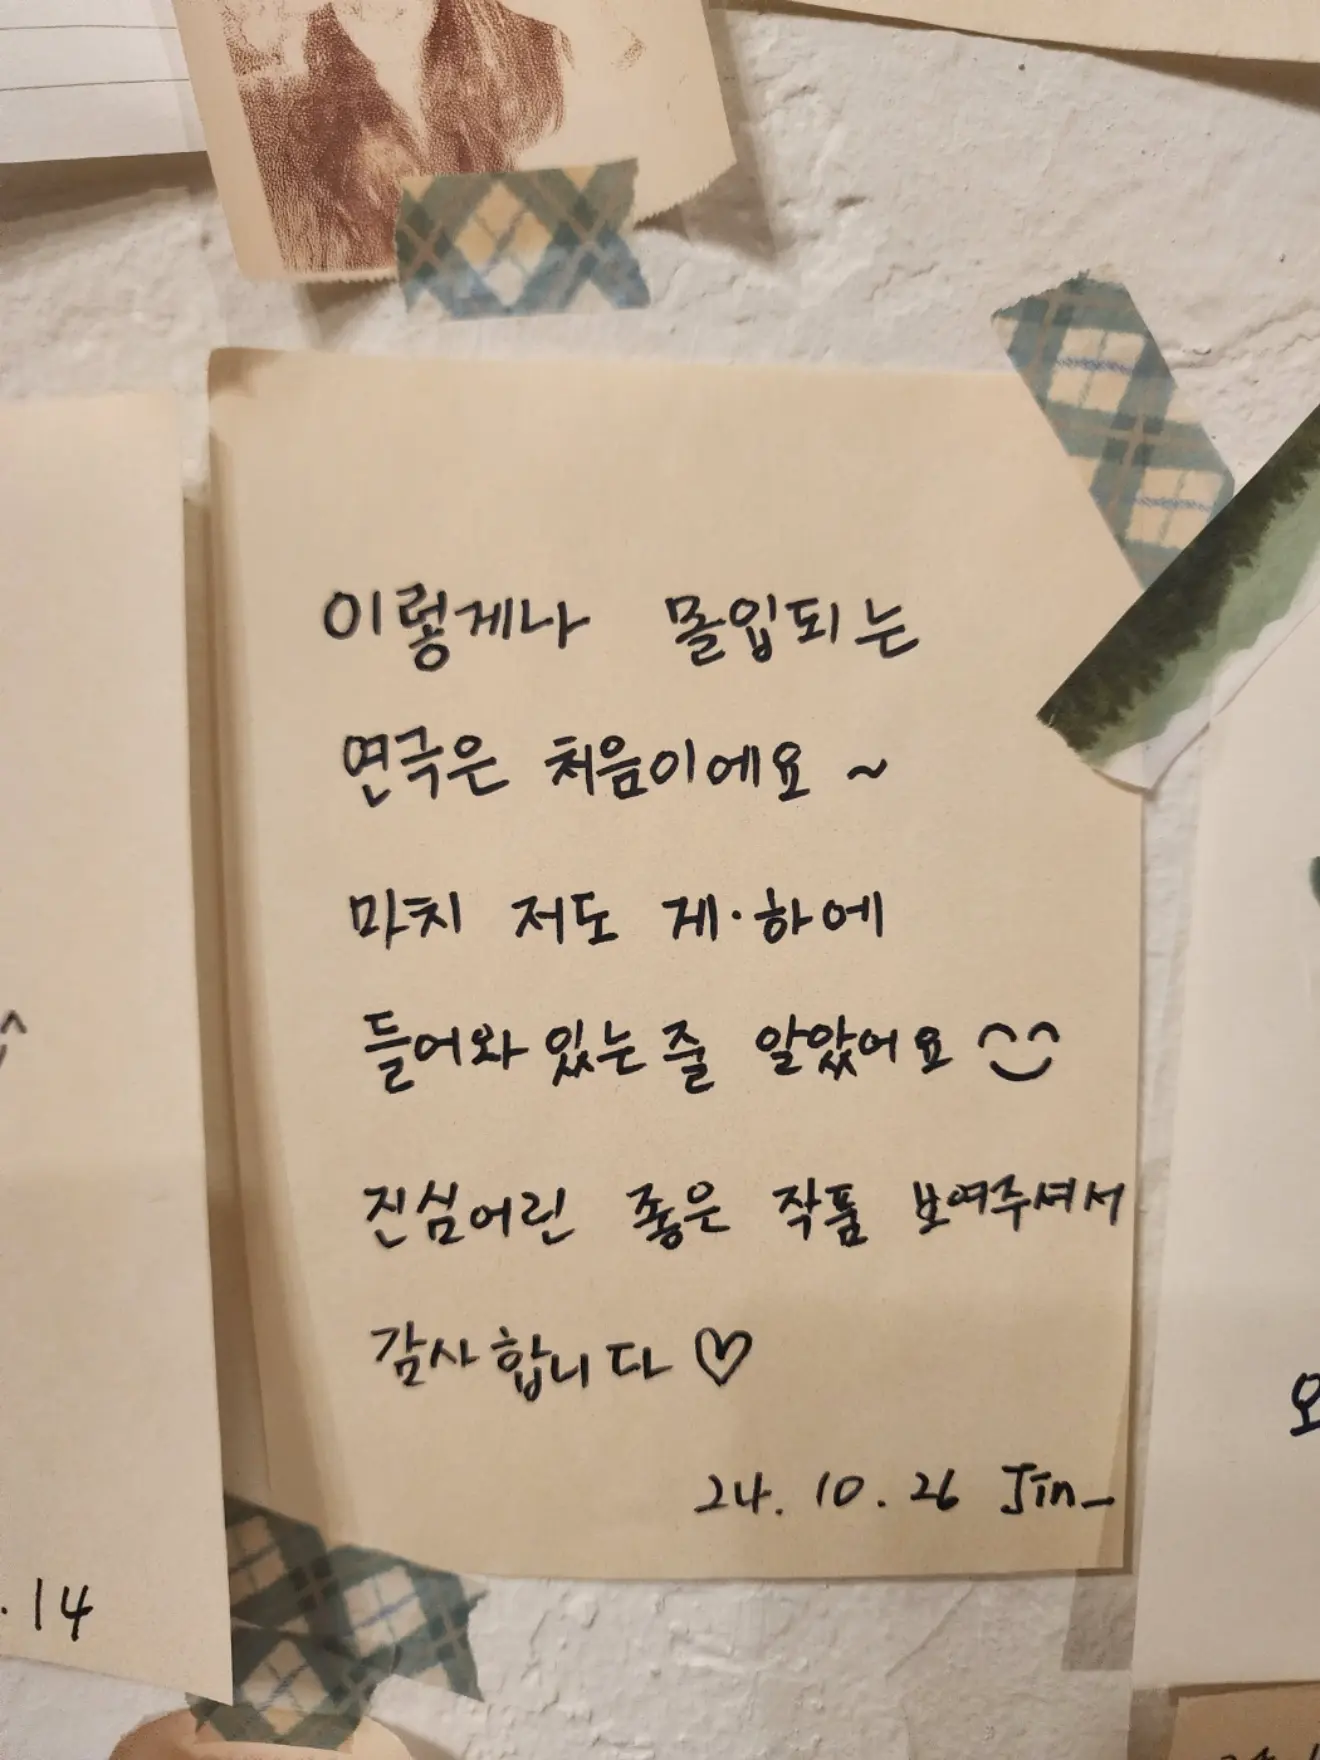 이렇게나 몰입되는
연극은 처음이에요 ~
마치 저도 게·하에
들어와 있는 줄 알았어요
진심어린 좋은 작품 보여주셔서
감사합니다 ♡
24. 10. 26 Jin_
.14
오